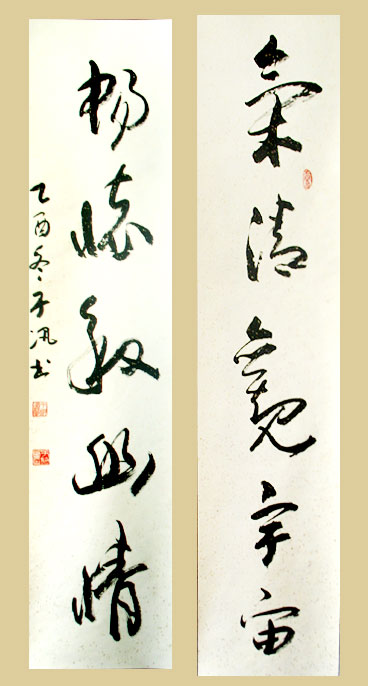 氣清觀宇宙
暢懷敘幽情
乙酉冬子書